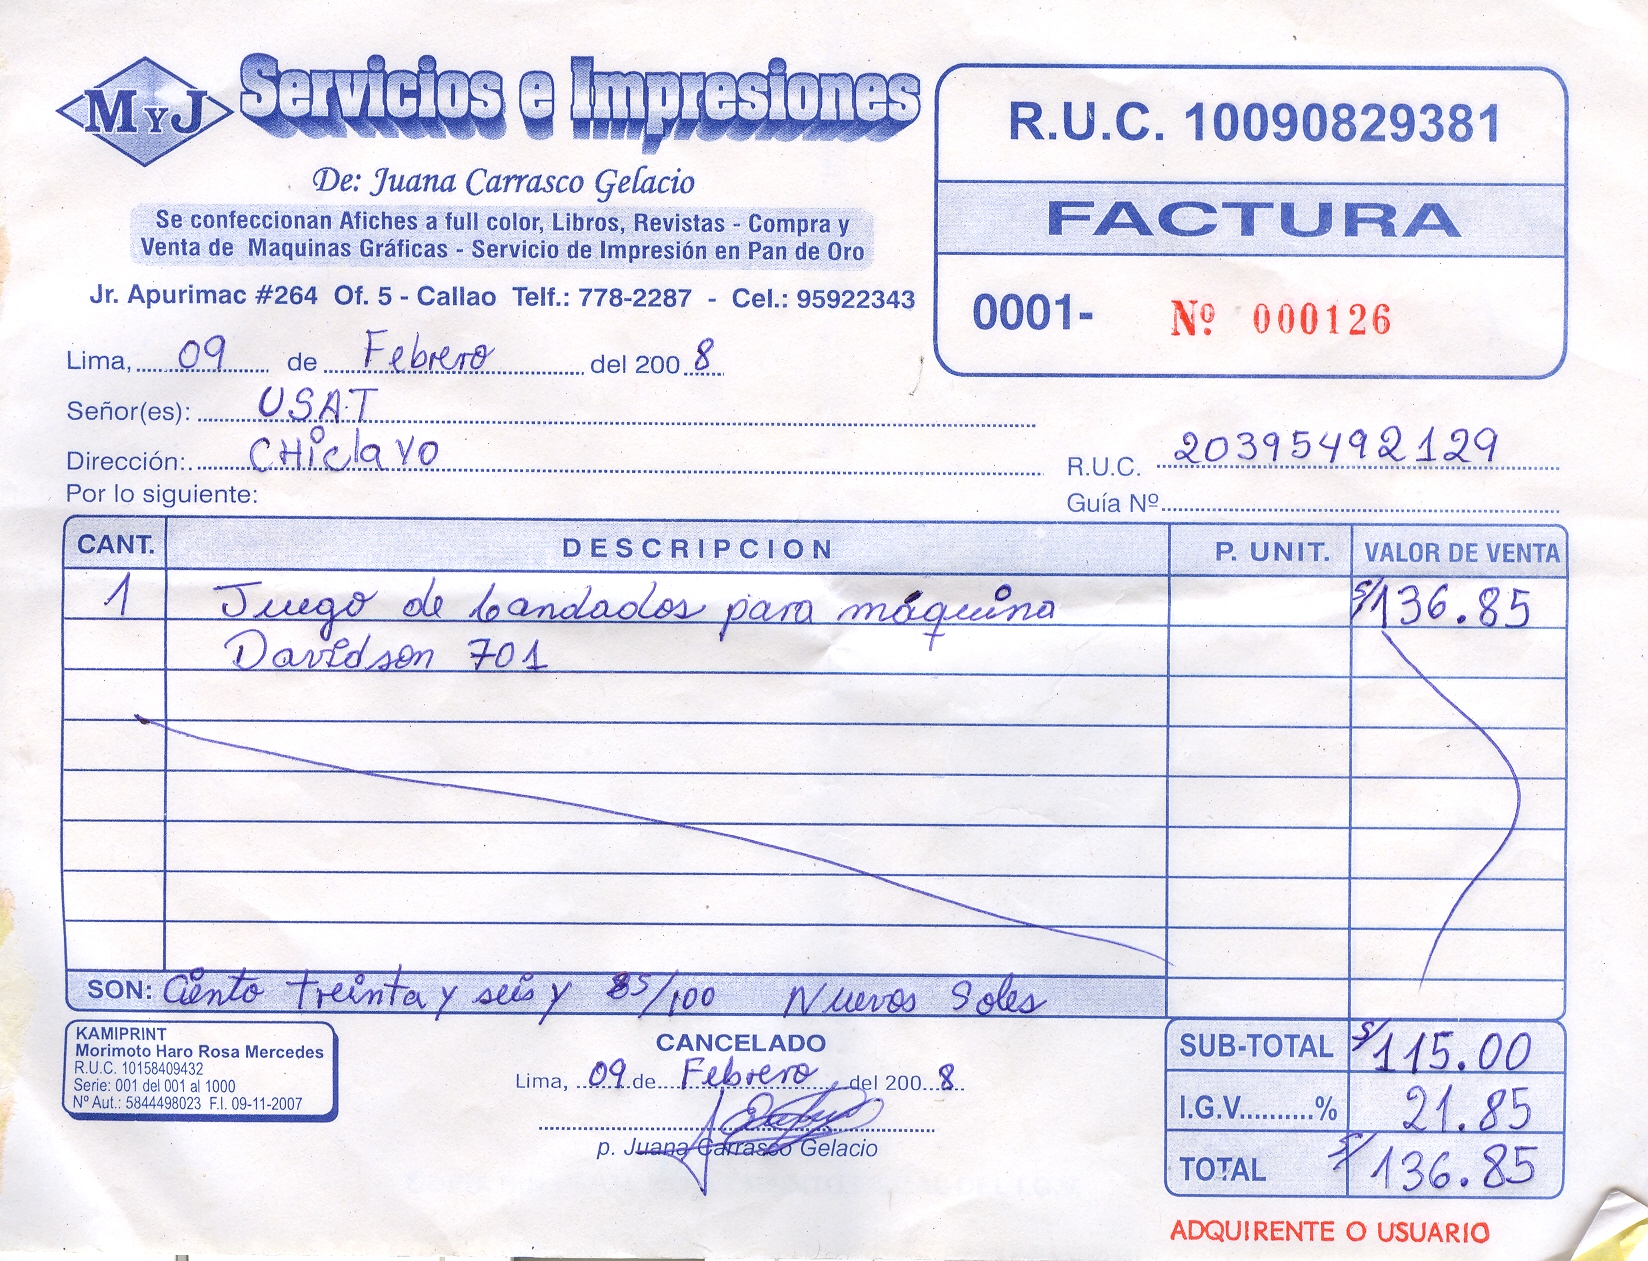 MYJ Servicios e Impresiones
De: Juana Carrasco Gelacio
Se confeccionan Afiches a full color, Libros, Revistas - Compra y
Venta de Maquinas Gráficas - Servicio de Impresión en Pan de Oro
Jr. Apurimac #264 Of. 5 - Callao Telf.: 778-2287 - Cel.: 95922343
R.U.C. 10090829381
FACTURA
0001- Nº 000126
Lima, 09 de Febrero del 2008
Señor(es): USAT
Dirección: CHiclayo
R.U.C. 20395492129
Por lo siguiente:
Guía Nº
CANT. DESCRIPCION P. UNIT. VALOR DE VENTA
1 Juego de bandados para máquina S/136.85
Davidson 701
SON: Ciento treinta y seis y 85/100 Nuevos Soles
KAMIPRINT
Morimoto Haro Rosa Mercedes
R.U.C. 10158409432
Serie: 001 del 001 al 1000
Nº Aut.: 5844498023 F.I. 09-11-2007
CANCELADO
Lima, 09 de Febrero del 2008
p. Juana Carrasco Gelacio
SUB-TOTAL S/115.00
I.G.V..........% 21.85
TOTAL S/136.85
ADQUIRENTE O USUARIO